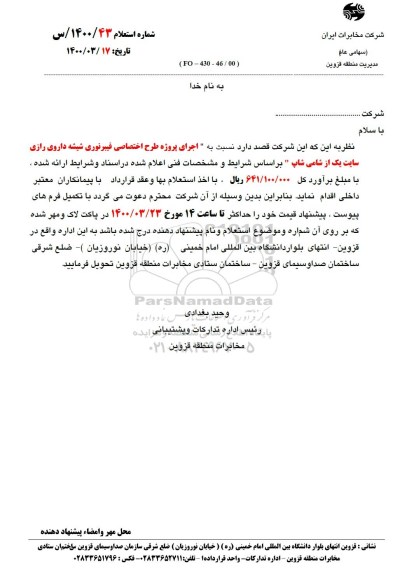 شرکت مخابرات ایران
(سهامی عام)
مدیریت منطقه قزوین
شماره استعلام ۱۴۰۰/۴۳/س
تاریخ: ۱۴۰۰/۰۳/۱۷
( FO – 430 - 46 / 00 )
به نام خدا
شرکت ........................................
با سلام
نظربه این که این شرکت قصد دارد نسبت به " اجرای پروژه طرح اختصاصی فیبرنوری شیشه داروی رازی
سایت یک از شامی شاپ " براساس شرایط و مشخصات فنی اعلام شده دراسناد وشرایط ارائه شده ،
با مبلغ برآورد کل ۶۴۱/۱۰۰/۰۰۰ ریال ، با اخذ استعلام بها وعقد قرارداد با پیمانکاران معتبر
داخلی اقدام نماید. بنابراین بدین وسیله از آن شرکت محترم دعوت می گردد با تکمیل فرم های
پیوست ، پیشنهاد قیمت خود را حداکثر تا ساعت ۱۴ مورخ ۱۴۰۰/۰۳/۲۳ در پاکت لاک ومهر شده
که بر روی آن شماره وموضوع استعلام ونام پیشنهاد دهنده درج شده باشد به این اداره واقع در
قزوین- انتهای بلواردانشگاه بین المللی امام خمینی (ره) (خیابان نوروزیان )- ضلع شرقی
ساختمان صداوسیمای قزوین – ساختمان ستادی مخابرات منطقه قزوین تحویل فرمایید.
ParsNamadData
وحید بغدادی
رئیس اداره تدارکات وپشتیبانی
مخابرات منطقه قزوین
محل مهر وامضاء پیشنهاد دهنده
نشانی : قزوین انتهای بلوار دانشگاه بین المللی امام خمینی (ره ) ( خیابان نوروزیان ) ضلع شرقی سازمان صداوسیمای قزوین ساختمان ستادی
مخابرات منطقه قزوین – اداره تدارکات- واحد قراردادها- تلفن:۰۲۸۳۳۶۵۲۷۱۱- فکس : ۰۲۸۳۳۶۵۱۷۹۶